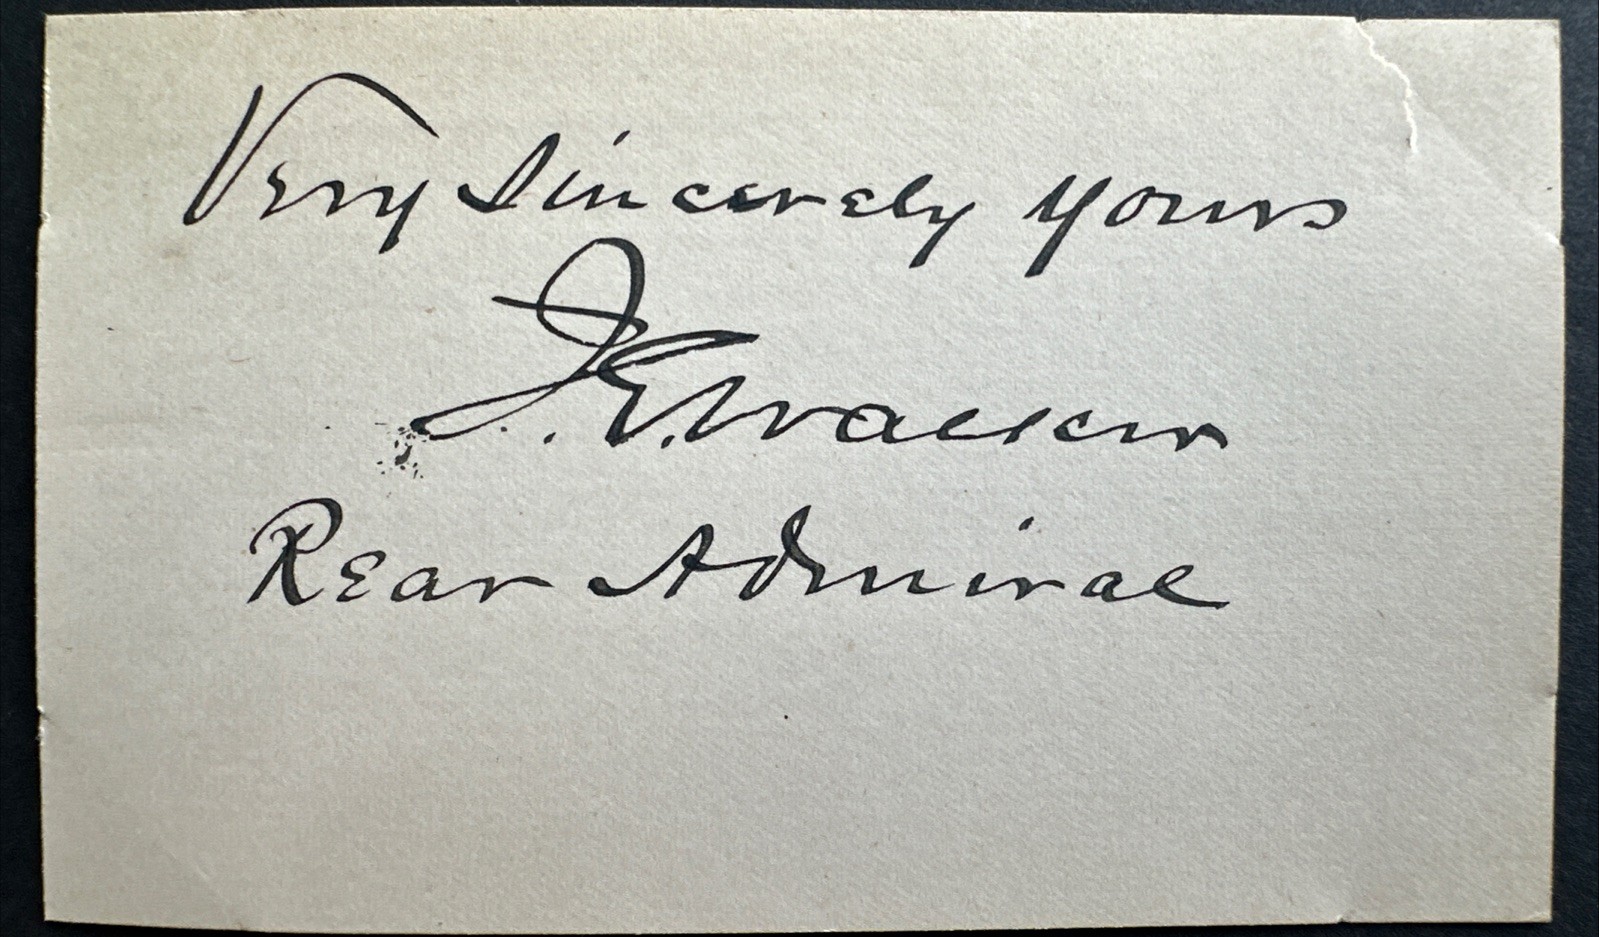 Very Sincerely Yours
J. G. Walker
Rear Admiral